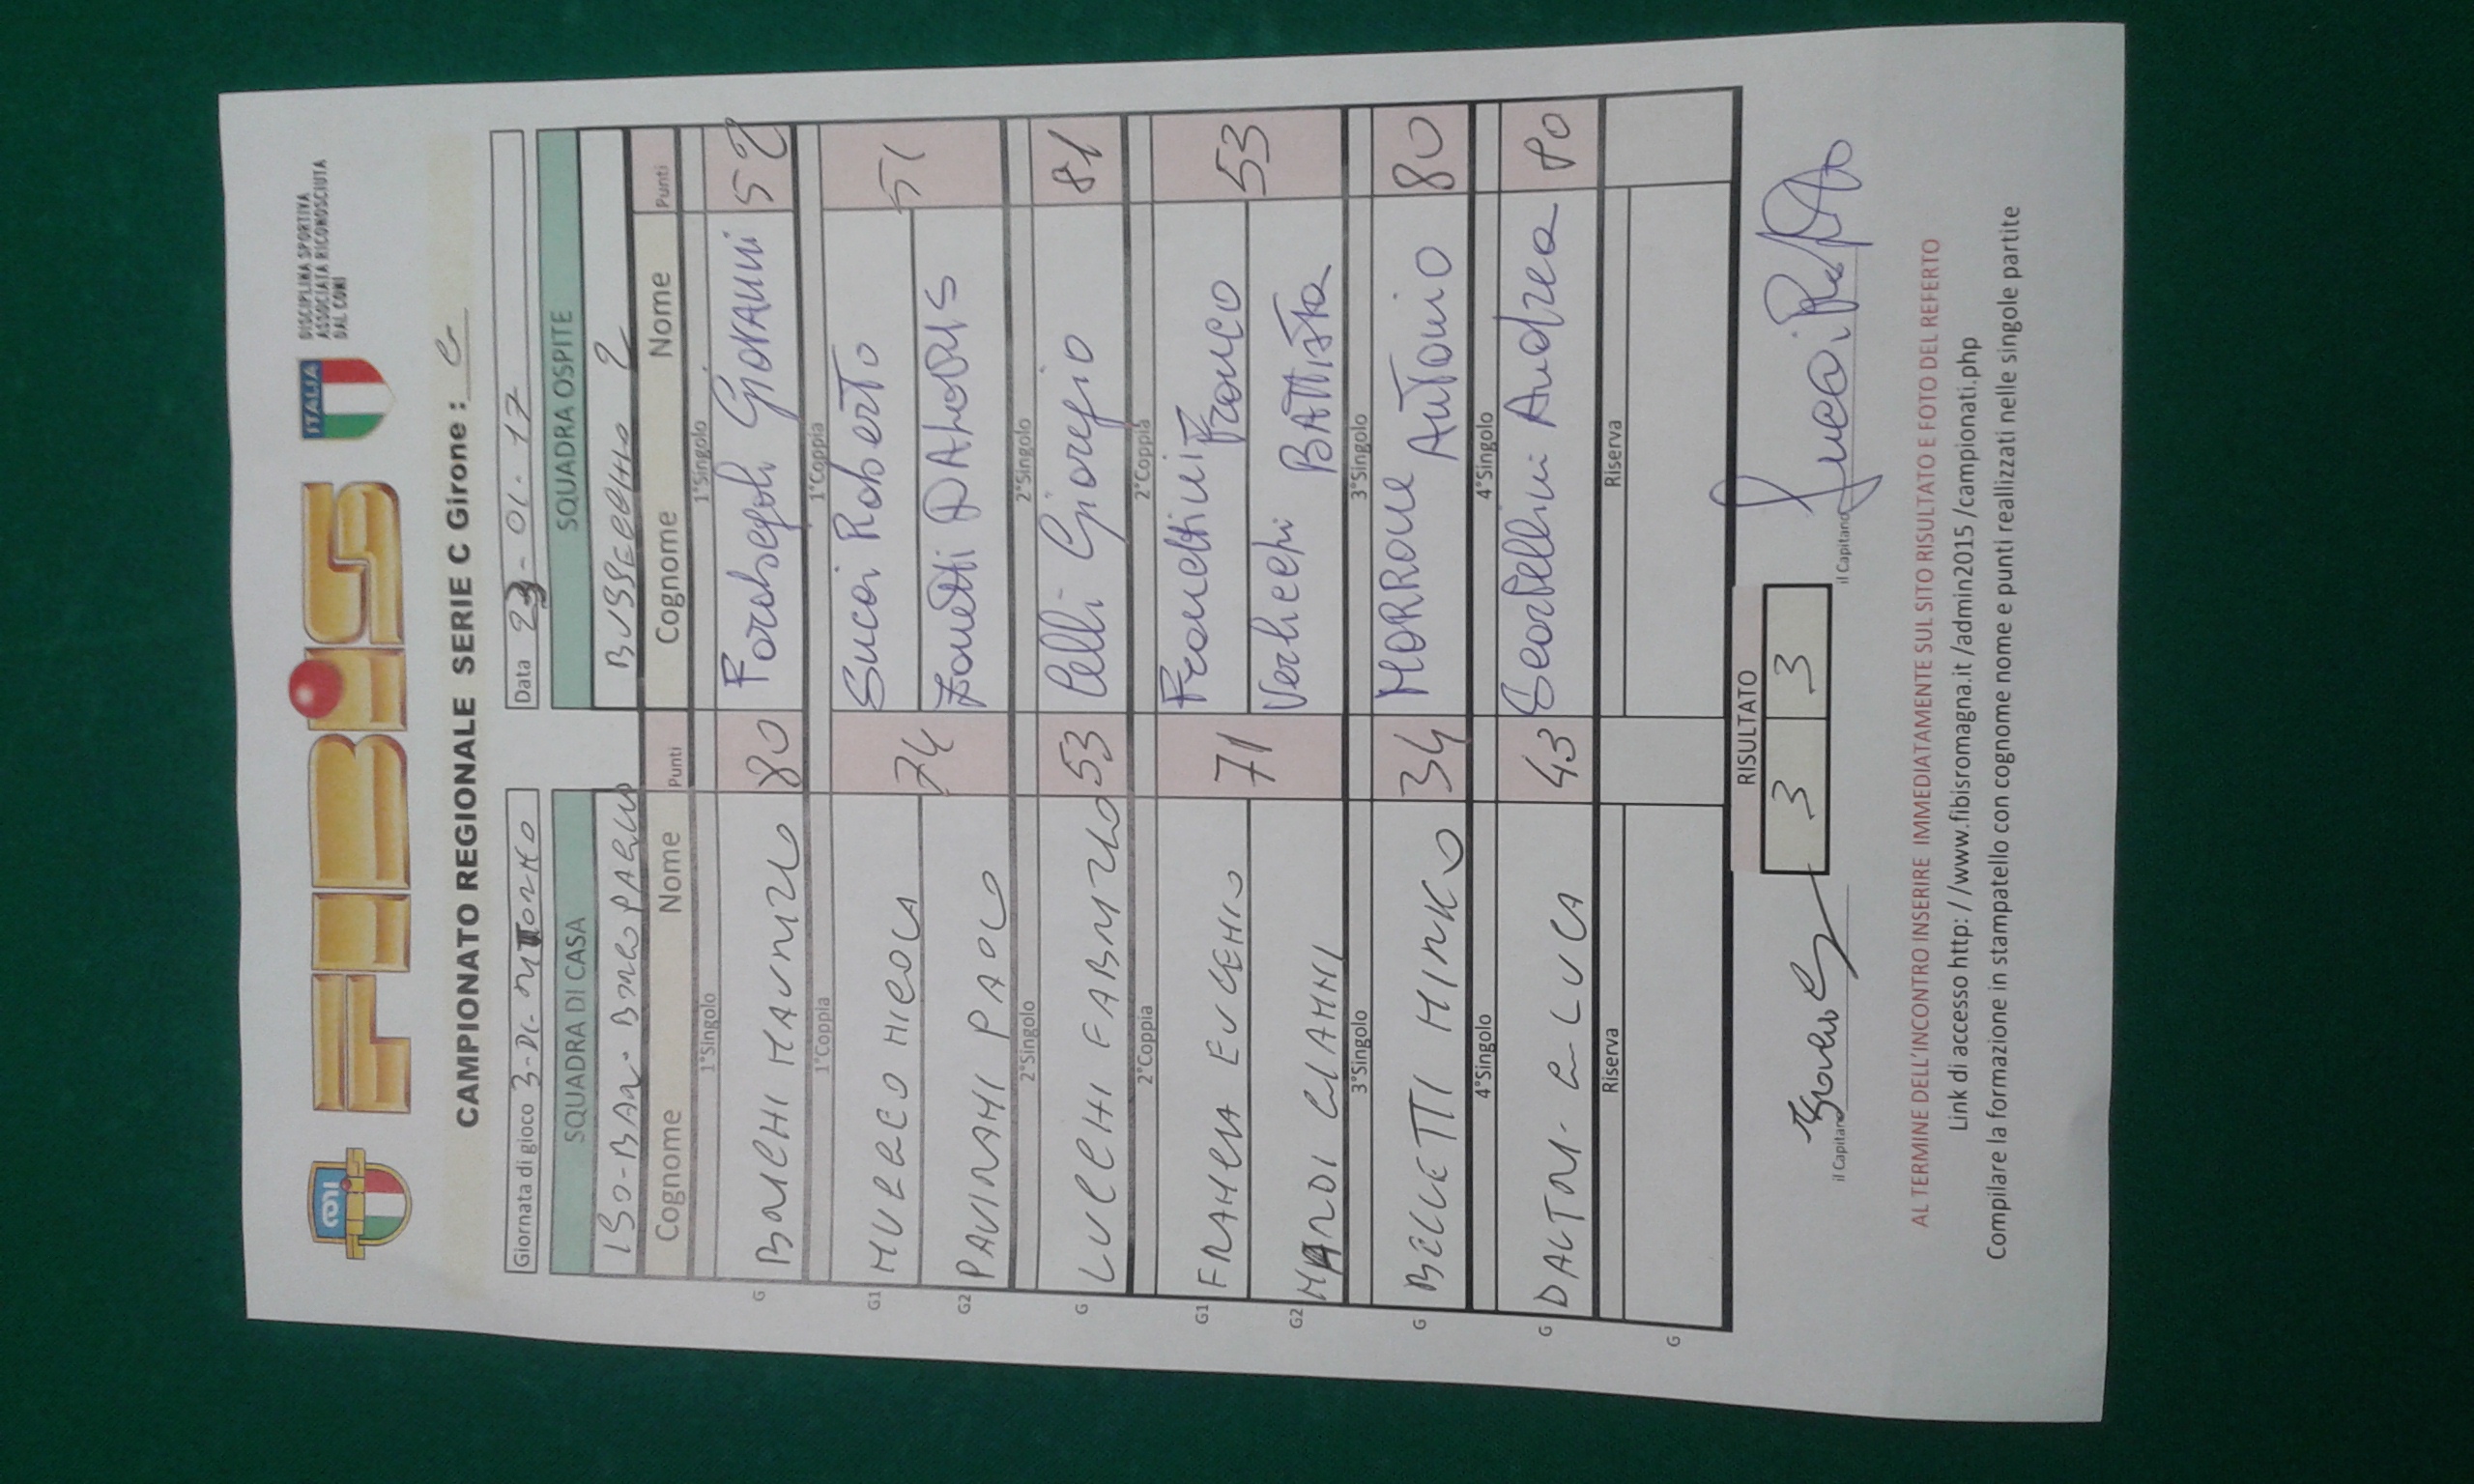 CONI
FIBIS
ITALIA
DISCIPLINA SPORTIVA
ASSOCIATA RICONOSCIUTA
DAL CONI
CAMPIONATO REGIONALE SERIE C Girone : C
Giornata di gioco 3-DI- Data 23-01-17
SQUADRA DI CASA SQUADRA OSPITE
BUSSECCHIO 2
Cognome Nome Punti Cognome Nome Punti
1°Singolo 1°Singolo
G BACCHI MAURIZIO 80 Giovanni 52
1°Coppia 1°Coppia
G1 NICOLA 74 Succi Roberto 51
G2 PAVIRANI PAOLO Zanetti
2°Singolo 2°Singolo
G LUCCHI FABRIZIO 53 Celli Giorgio 81
2°Coppia 2°Coppia
G1 EUGENIO 71 Franco 53
G2 NARDI GIANNI BATTISTA
3°Singolo 3°Singolo
G BELLETTI MIRKO 34 MORRONE ANTONIO 80
4°Singolo 4°Singolo
G LUCA 43 Scartellini Andrea 80
Riserva Riserva
G
RISULTATO
3 3
il Capitano il Capitano
AL TERMINE DELL'INCONTRO INSERIRE IMMEDIATAMENTE SUL SITO RISULTATO E FOTO DEL REFERTO
Link di accesso http: / /www.fibisromagna.it /admin2015 /campionati.php
Compilare la formazione in stampatello con cognome nome e punti realizzati nelle singole partite